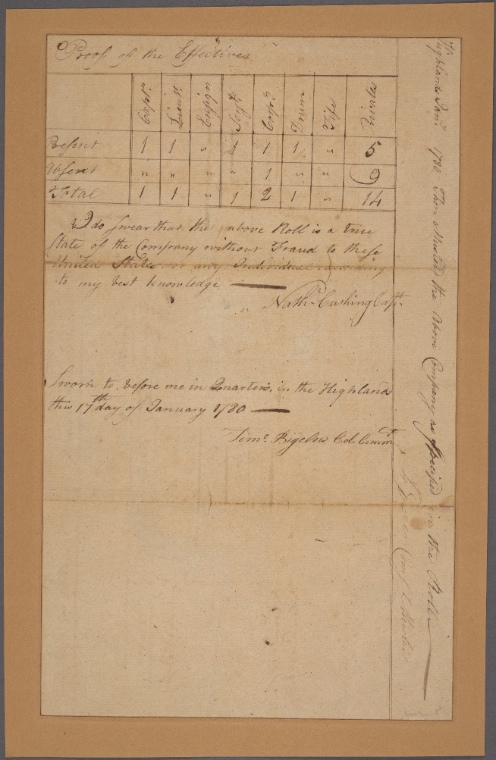 Proof of the Effectives
Capt. Lieut. Ensign Serjt. Corpl. Drum Fife Privates
Present 1 1 " 1 1 1 " 5
Absent " " " " 1 " " 9
Total 1 1 " 1 2 1 " 14
I do swear that the above Roll is a true
State of the Company without Fraud to these
United States or any Individual
to my best Knowledge
Nathl. Cushing Capt.
Sworn to before me in Quarters in the Highlands
this 17th day of January 1780
Timo. Bigelow Col. Commdt.
Highlands Jany. 1780 Then Mustered the above Company as specified in the Roll